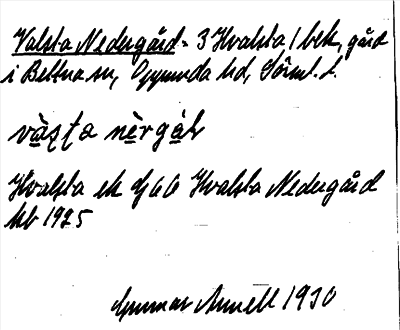 Valsta Nedergård - 3 Hvalsta 1 bek, gård
i Bettna sn, Oppunda hd, Sörml. l.
vàsta nèrgàḷ
Hvalsta ek dj 66 Hvalsta Nedergård
kb 1925
Gunnar Annell 1930